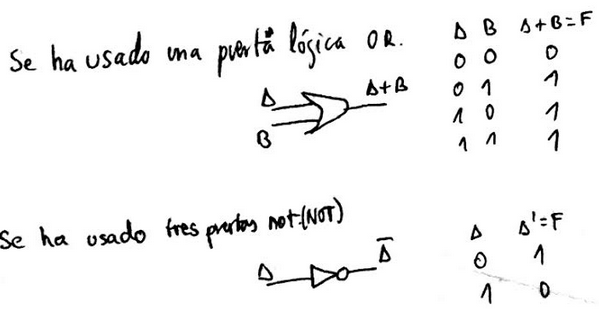 Se ha usado una puerta lógica OR.
A B A+B=F
0 0 0
0 1 1
1 0 1
1 1 1
A
B
A+B
Se ha usado tres puertas not.(NOT)
A A'=F
0 1
1 0
A
A̅